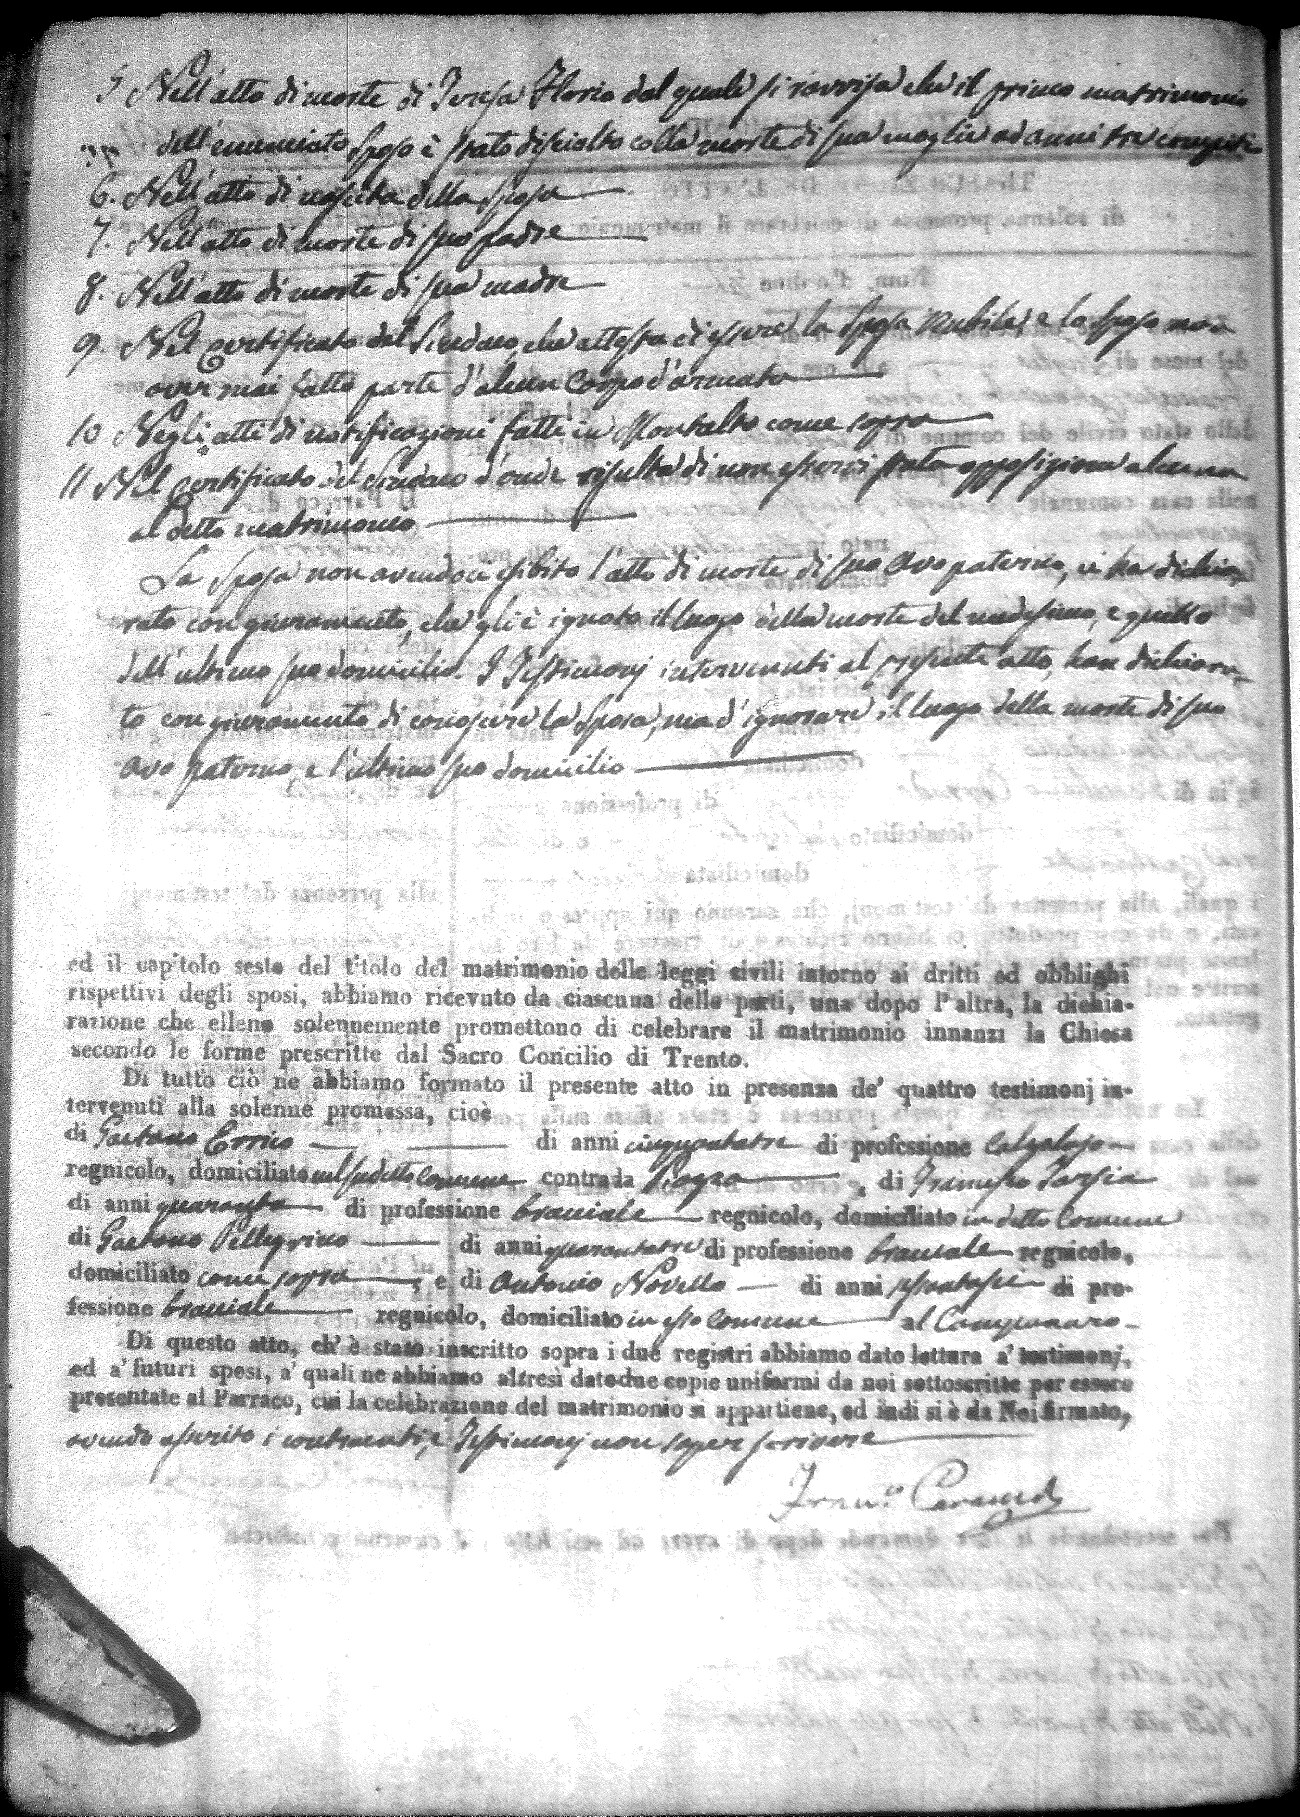 5 Nell'atto di morte di Teresa Florio dal quale si ravvisa che il primo matrimonio
dell'enunciato Sposo è stato disciolto colla morte di sua moglie ad anni tre compiti
6. Nell'atto di nascita della Sposa
7. Nell'atto di morte di suo padre
8. Nell'atto di morte di sua madre
9. Nel Certificato del Sindaco, che attesta di essere la Sposa nubile, e lo Sposo non
aver mai fatto parte d'alcun Corpo d'armata
10 Negli atti di notificazioni fatte in Montalto come sopra
11 Nel Certificato del Sindaco d'onde risulta di non esservi stata opposizione alcuna
al detto matrimonio
La Sposa non avendoci esibito l'atto di morte di suo Avo paterno, ci ha dichia-
rato con giuramento, che gli è ignoto il luogo della morte del medesimo, e quello
dell'ultimo suo domicilio. I Testimonj intervenuti al presente atto, han dichiara-
to con giuramento di conoscere la Sposa, ma d'ignorare il luogo della morte di suo
Avo paterno, e l'ultimo suo domicilio
ed il capitolo sesto del titolo del matrimonio delle leggi civili intorno ai dritti ed obblighi
rispettivi degli sposi, abbiamo ricevuto da ciascuna delle parti, una dopo l'altra, la dichia-
razione che elleno solennemente promettono di celebrare il matrimonio innanzi la Chiesa
secondo le forme prescritte dal Sacro Concilio di Trento.
Di tutto ciò ne abbiamo formato il presente atto in presenza de' quattro testimonj in-
tervenuti alla solenne promessa, cioè
di Gaetano Errico di anni cinquantatre di professione Calzolajo
regnicolo, domiciliato nel sudetto Comune contrada Piazza, di Francesco Tarsia
di anni quaranta di professione bracciale regnicolo, domiciliato in detto Comune
di Gaetano Pellegrino di anni quarantatre di professione bracciale regnicolo,
domiciliato come sopra, e di Antonio Novello di anni sessantasei di pro-
fessione bracciale regnicolo, domiciliato in esso Comune al Campanaro
Di questo atto, ch'è stato inscritto sopra i due registri abbiamo dato lettura a' testimonj,
ed a' futuri sposi, a' quali ne abbiamo altresì dato due copie uniformi da noi sottoscritte per essere
presentate al Parraco, cui la celebrazione del matrimonio si appartiene, ed indi si è da Noi firmato,
avendo asserito i contraenti, e Testimonj non saper scrivere
Fran.co